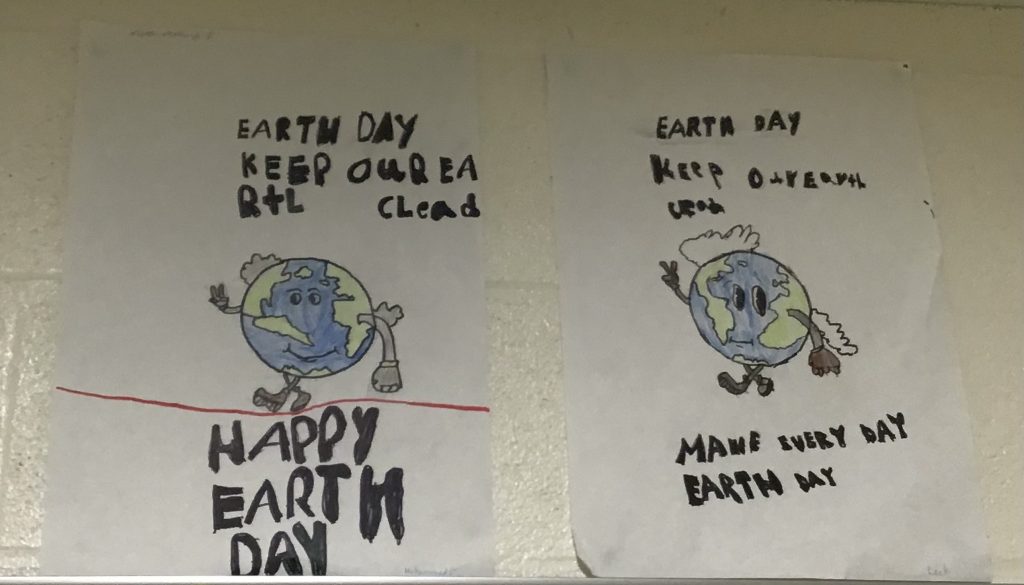 EARTH DAY
KEEP OUR EA
RtL CLead
HAPPY
EARTH
DAY
EARTH DAY
KEEP OurEarth
MAKE EVERY DAY
EARTH DAY